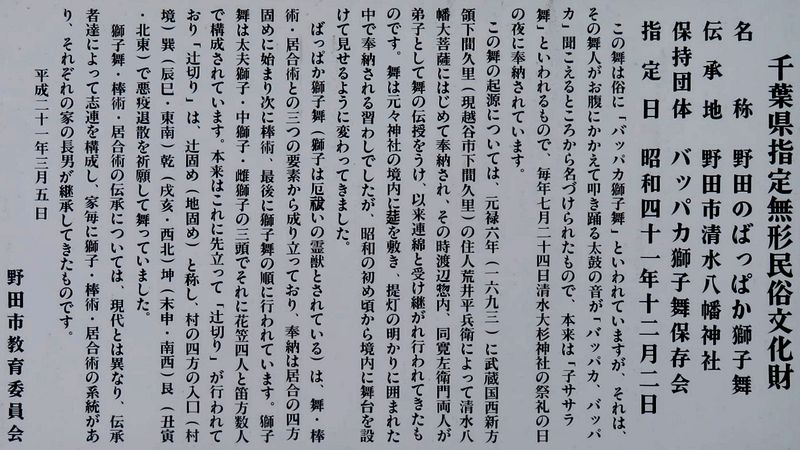 千葉県指定無形民俗文化財
名　　称　野田のばっぱか獅子舞
伝 承 地　野田市清水八幡神社
保持団体　バッパカ獅子舞保存会
指 定 日　昭和四十一年十二月二日
この舞は俗に「バッパカ獅子舞」といわれていますが、それは、
その舞人がお腹にかかえて叩き踊る太鼓の音が「バッパカ、バッパ
カ」聞こえるところから名づけられたもので、本来は「子ササラ
舞」といわれるもので、毎年七月二十四日清水大杉神社の祭礼の日
の夜に奉納されています。
この舞の起源については、元禄六年（一六九三）に武蔵国西新方
領下間久里（現越谷市下間久里）の住人荒井平兵衛によって清水八
幡大菩薩にはじめて奉納され、その時渡辺惣内、同寛左衛門両人が
弟子として舞の伝授をうけ、以来連綿と受け継がれ行われてきたも
のです。舞は元々神社の境内に莚を敷き、提灯の明かりに囲まれた
中で奉納される習わしでしたが、昭和の初め頃から境内に舞台を設
けて見せるように変わってきました。
ばっぱか獅子舞（獅子は厄祓いの霊獣とされている）は、舞・棒
術・居合術との三つの要素から成り立っており、奉納は居合の四方
固めに始まり次に棒術、最後に獅子舞の順に行われています。獅子
舞は太夫獅子・中獅子・雌獅子の三頭でそれに花笠四人と笛方数人
で構成されています。本来はこれに先立って「辻切り」が行われて
おり「辻切り」は、辻固め（地固め）と称し、村の四方の入口（村
境）巽（辰巳・東南）乾（戌亥・西北）坤（未申・南西）艮（丑寅
・北東）で悪疫退散を祈願して舞っていました。
獅子舞・棒術・居合術の伝承については、現代とは異なり、伝承
者達によって志連を構成し、家毎に獅子・棒術・居合術の系統があ
り、それぞれの家の長男が継承してきたものです。
平成二十一年三月五日
野田市教育委員会